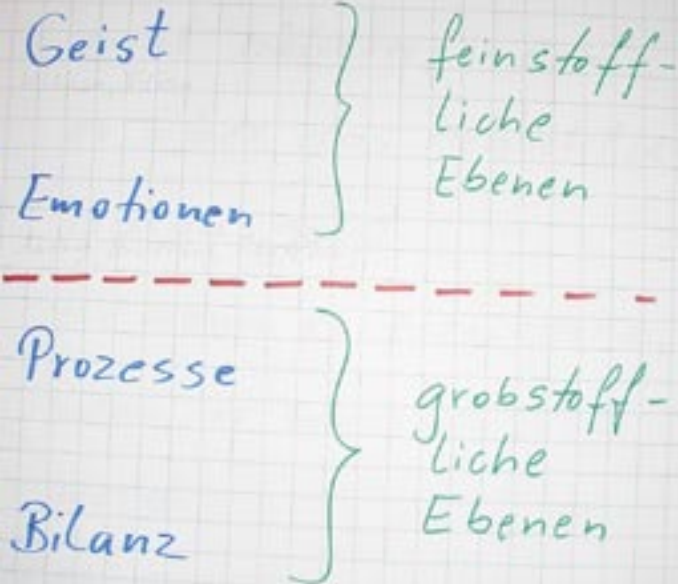 Geist
Emotionen
feinstoff-
liche
Ebenen
Prozesse
Bilanz
grobstoff-
liche
Ebenen